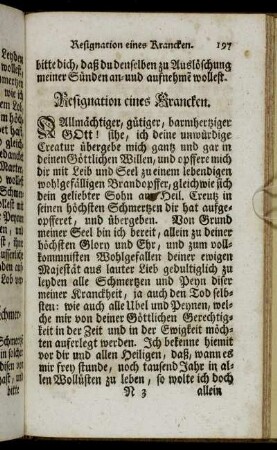 Resignation eines Krancken. 197
bitte dich, daß du denselben zu Auslöschung
meiner Sünden an- und aufnehmē wollest.
Resignation eines Krancken.
O Allmächtiger, gütiger, barmhertziger
GOtt! sihe, ich deine unwürdige
Creatur übergebe mich gantz und gar in
deinen Göttlichen Willen, und opffere mich
dir mit Leib und Seel zu einem lebendigen
wohlgefälligen Brandopffer, gleichwie sich
dein geliebter Sohn am Heil. Creutz in
seinen höchsten Schmertzen dir hat aufge-
opfferet, und übergeben. Von Grund
meiner Seel bin ich bereit, allein zu deiner
höchsten Glory und Ehr, und zum voll-
kommnisten Wohlgefallen deiner ewigen
Majestät aus lauter Lieb gedultiglich zu
leyden alle Schmertzen und Peyn diser
meiner Kranckheit, ja auch den Tod selb-
sten: wie auch alle Ubel und Peynen, wel-
che mir von deiner Göttlichen Gerechtig-
keit in der Zeit und in der Ewigkeit möch-
ten auferlegt werden. Ich bekenne hiemit
vor dir und allen Heiligen, daß, wann es
mir frey stunde, noch tausend Jahr in al-
len Wollüsten zu leben, so wolte ich doch
N 3 allein